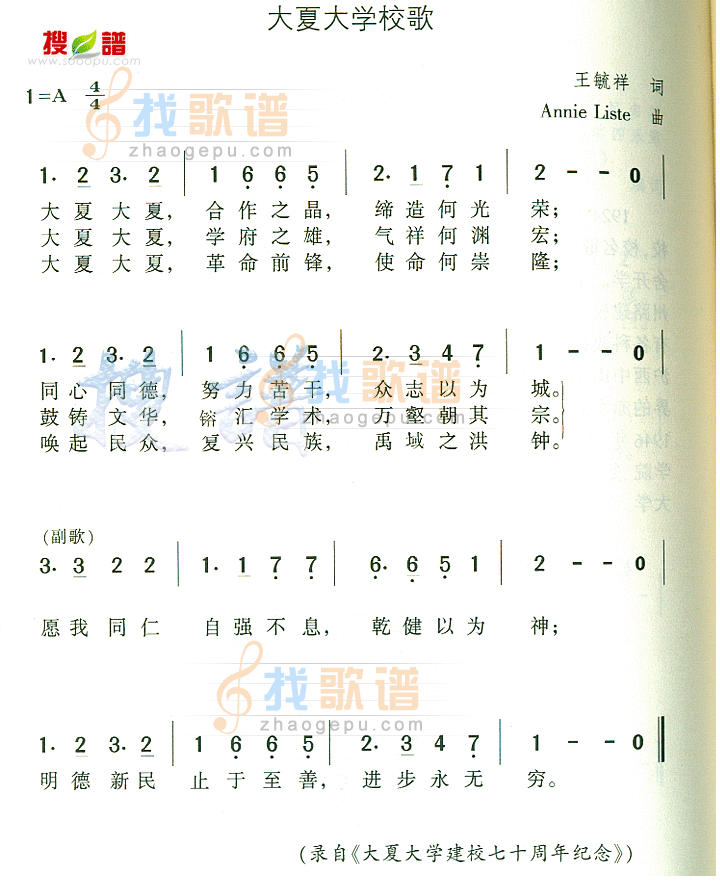 大夏大学校歌
搜谱
www.sooopu.com
王毓祥 词
1=A 4/4
Annie Liste 曲
找歌谱
zhaogepu.com
1· 2 3· 2 | 1 6 6 5 | 2· 1 7 1 | 2 - - 0
大夏大夏, 合作之晶, 缔造何光荣;
大夏大夏, 学府之雄, 气祥何渊宏;
大夏大夏, 革命前锋, 使命何崇隆;
1· 2 3· 2 | 1 6 6 5 | 2· 3 4 7 | 1 - - 0
找歌谱
zhaogepu.com
同心同德, 努力苦干, 众志以为城。
鼓铸文华, 镕汇学术, 万壑朝其宗。
唤起民众, 复兴民族, 禹域之洪钟。
(副歌)
3· 3 2 2 | 1· 1 7 7 | 6· 6 5 1 | 2 - - 0
愿我同仁 自强不息, 乾健以为神;
找歌谱
zhaogepu.com
1· 2 3· 2 | 1 6 6 5 | 2· 3 4 7 | 1 - - 0
明德新民 止于至善, 进步永无穷。
(录自《大夏大学建校七十周年纪念》)